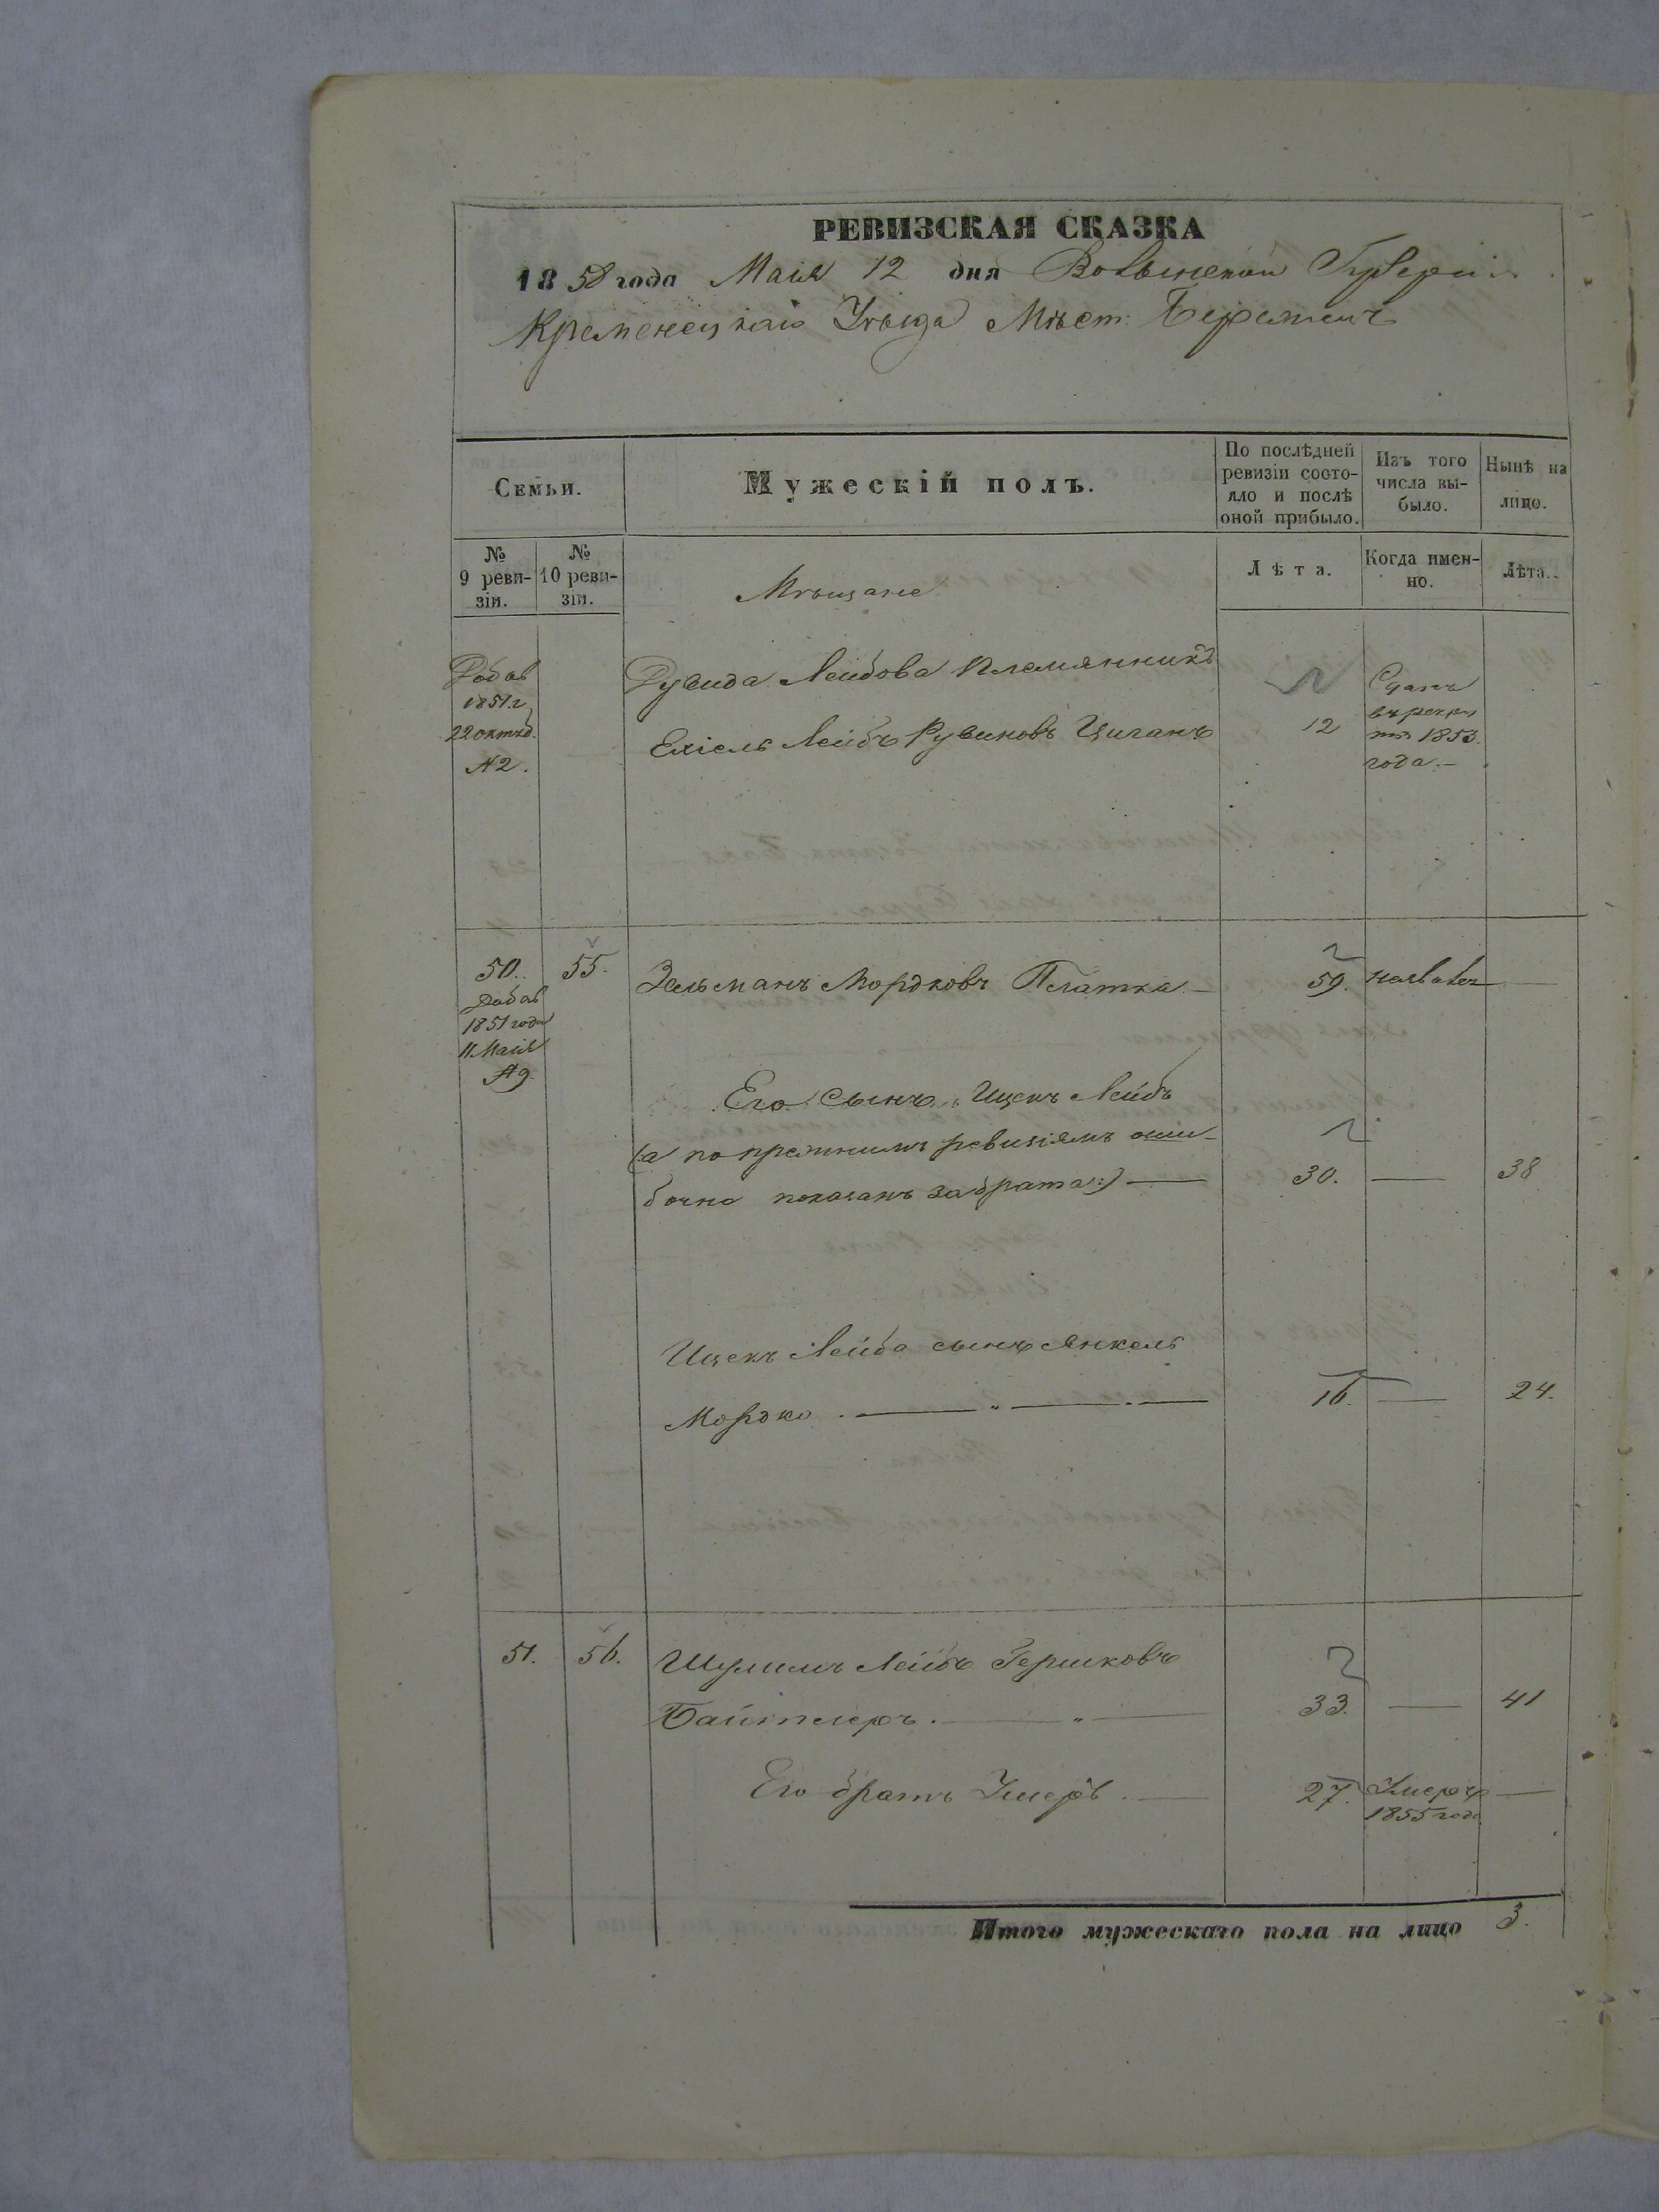 РЕВИЗСКАЯ СКАЗКА
1858 года Маія 12 дня Волынской Губерніи
Кременецкаго Уѣзда Мѣст: Бережецъ
Семьи.
Мужескій полъ.
По послѣдней
ревизіи состо-
яло и послѣ
оной прибыло.
Изъ того
числа вы-
было.
Нынѣ на
лицо.
№
9 реви-
зіи.
№
10 реви-
зіи.
Мѣщане
Лѣта.
Когда имен-
но.
Лѣта.
Добав
1851 г
22 октяб.
№ 2.
Рувина Лейбова племянникъ
Ехіель Лейбъ Рувиновъ Циганъ
12
Сданъ
въ рекру
ты 1853.
года.-
50.
Добав
1851 года
11 Маія
№ 9.
55.
Зельманъ Мордковъ Платка
59.
Его сынъ Ицекъ Лейбъ
(а по прежнимъ ревизіямъ оши-
бочно показанъ за брата:)
30.
38
Ицекъ Лейба сынъ Янкель
Мордко
16.
24.
51.
56.
Шулимъ Лейбъ Гершковъ
33.
41
Его братъ
27.
Умеръ
1855 года
Итого мужескаго пола на лицо 3.